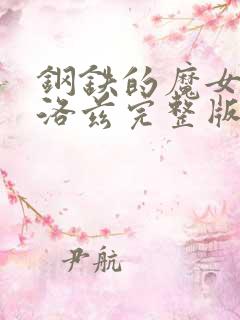 鋼鉄的魔女
洛茲完整版
尹航